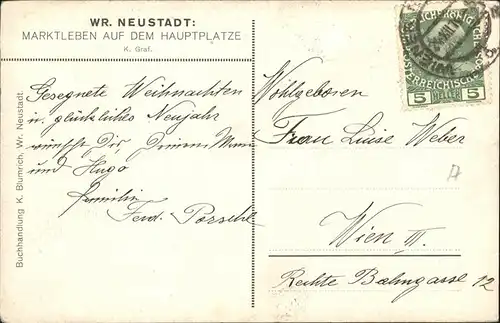 WR. NEUSTADT:
MARKTLEBEN AUF DEM HAUPTPLATZE
K. Graf.
Gesegnete Weihnachten
u. glückliches Neujahr
wünscht Dir, Deinem Mann
und Hugo
Familie
Ferd. Porsche
Buchhandlung K. Blumrich, Wr. Neustadt.
5 5
Wohlgeboren
Frau Luise Weber
Wien III.
Rechte Bahngasse 12